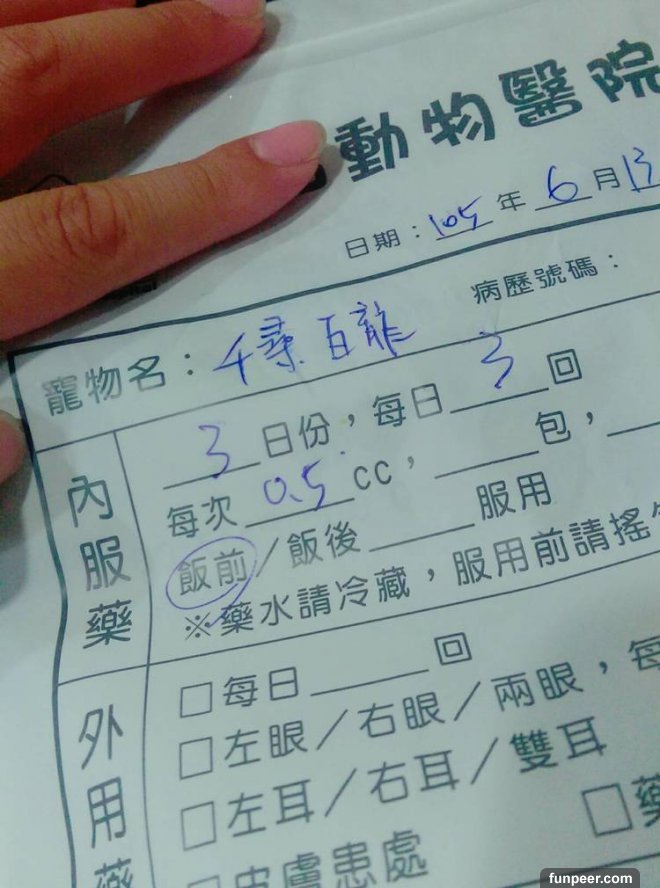 動物醫院
日期：105年6月13
病歷號碼：
寵物名：千尋 白龍
內服藥
3日份，每日3回
每次0.5cc，＿＿包，
飯前／飯後＿＿服用
※藥水請冷藏，服用前請搖
外用藥
□每日＿＿回
□左眼／右眼／兩眼，每
□左耳／右耳／雙耳
□皮膚患處
□藥
funpeer.com